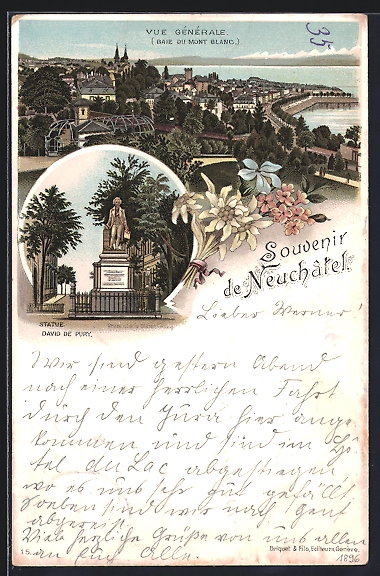 VUE GÉNÉRALE.
(BAIE DU MONT BLANC.)
35
Souvenir
de Neuchâtel.
STATUE
DAVID DE PURY.
Lieber Werner!
Wir sind gestern Abend
nach einer herrlichen Fahrt
durch den Jura hier ange
kommen und sind im Hô
tel du Lac abgestiegen
wo es uns sehr gut gefällt
soeben sind wir nach Genf
abgereist.
Viele herzliche Grüße von uns allen
an Euch Alle.
15.
Briquet & Fils, Editeurs, Genève.
1896